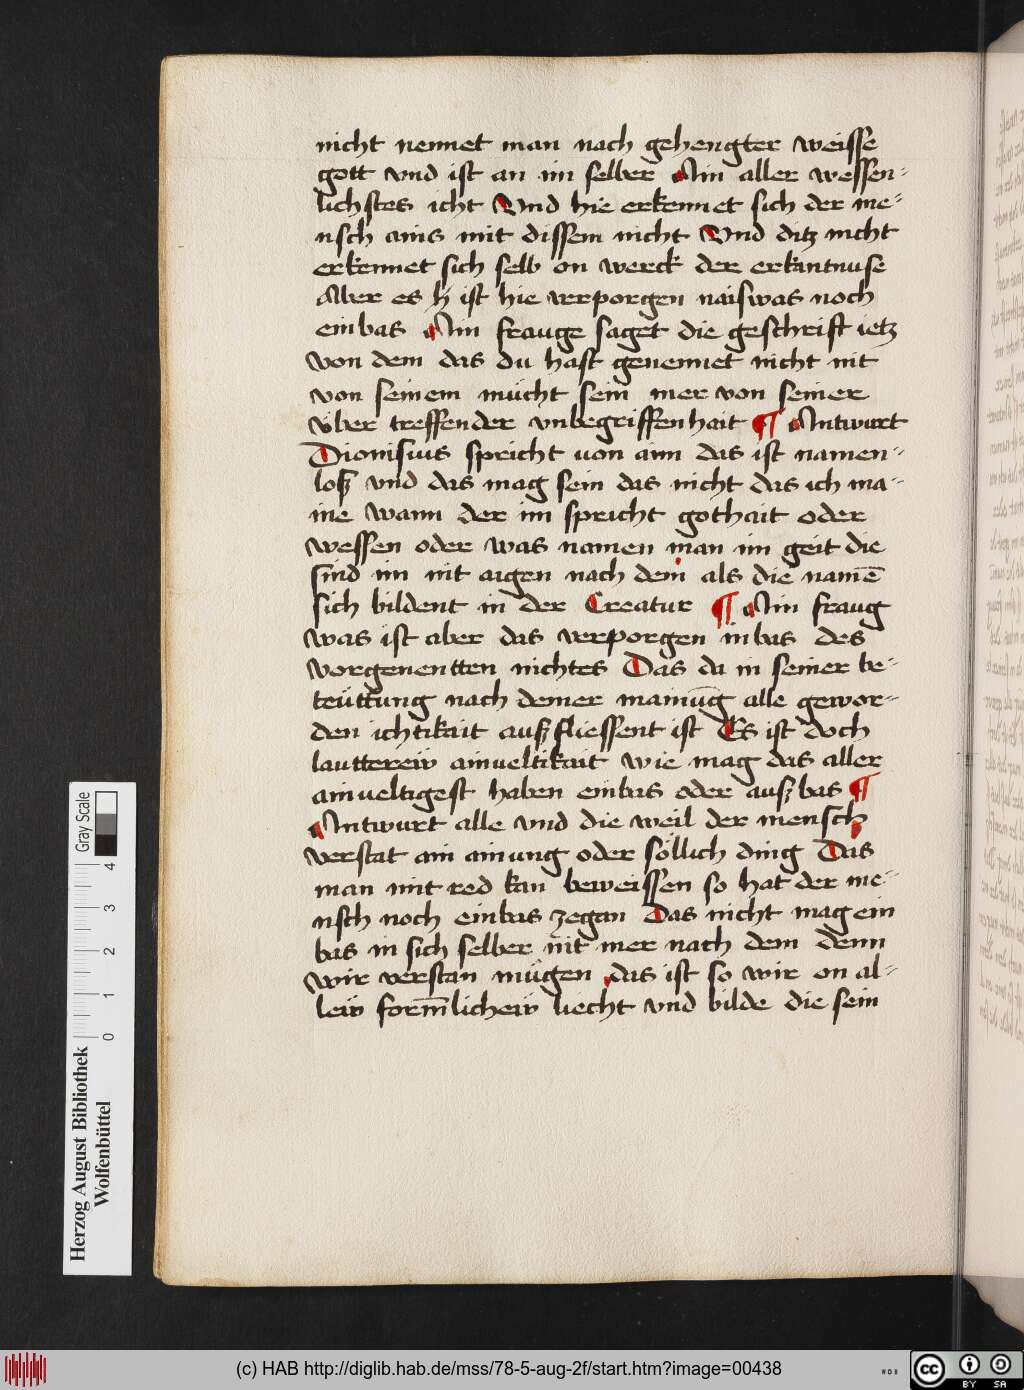 nicht nennet man nach gehengter weisse
gott vnd ist an im selber Ain aller wessen-
lichstes icht Vnd hie erkennet sich der me-
nsch ains mit dissem nicht Vnd ditz nicht
erkennet sich selb on werck der erkantnuse
Aber es h ist hie verporgen naiswas noch
einbas Ain frauge saget die geschrift ietz
von dem das du hast genennet nicht nit
von seinem nücht sein mer von seiner
über treffender vnbegriffenhait ¶ Antwurt
Dionisius spricht von aim das ist namen-
loß vnd das mag sein das nicht das ich ma-
ine wann der im spricht gothait oder
wessen oder was namen man im geit die
sind im nit aigen nach dem als die namē
sich bildent in der Creatur ¶ Ain fraug
was ist aber das verporgen inbas des
vorgenentten nichtes Das da in seiner be-
teüttung nach deiner mainūg alle gewor-
den ichtikait außfliessent ist Es ist doch
lautterew ainveltikait wie mag das aller
ainveltigest haben einbas oder auß bas ¶
Antwurt alle vnd die weil der mensch
verstat ain ainung oder söllich ding Das
man mit red kan beweissen so hat der me-
nsch noch einbas zegan Das nicht mag ein
bas in sich selber nit mer nach dem denn
wir verstan mügen das ist so wir on al-
lew form̄lichew liecht vnd bilde die sein
Gray Scale
0 1 2 3 4
Herzog August Bibliothek
Wolfenbüttel
(c) HAB http://diglib.hab.de/mss/78-5-aug-2f/start.htm?image=00438
WDB
CC BY SA